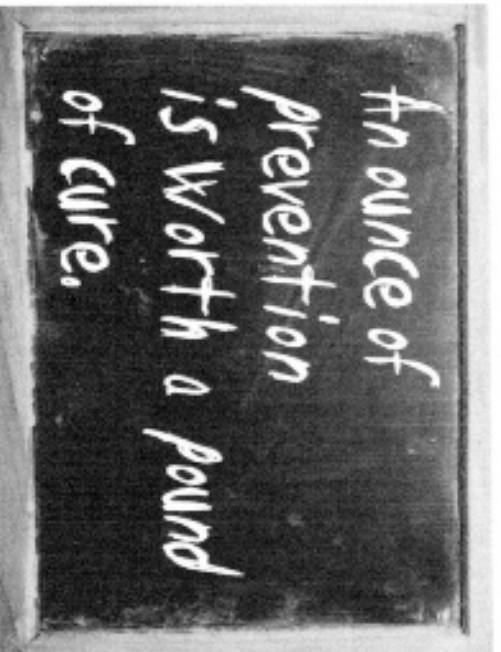 An ounce of
prevention
is worth a pound
of cure.